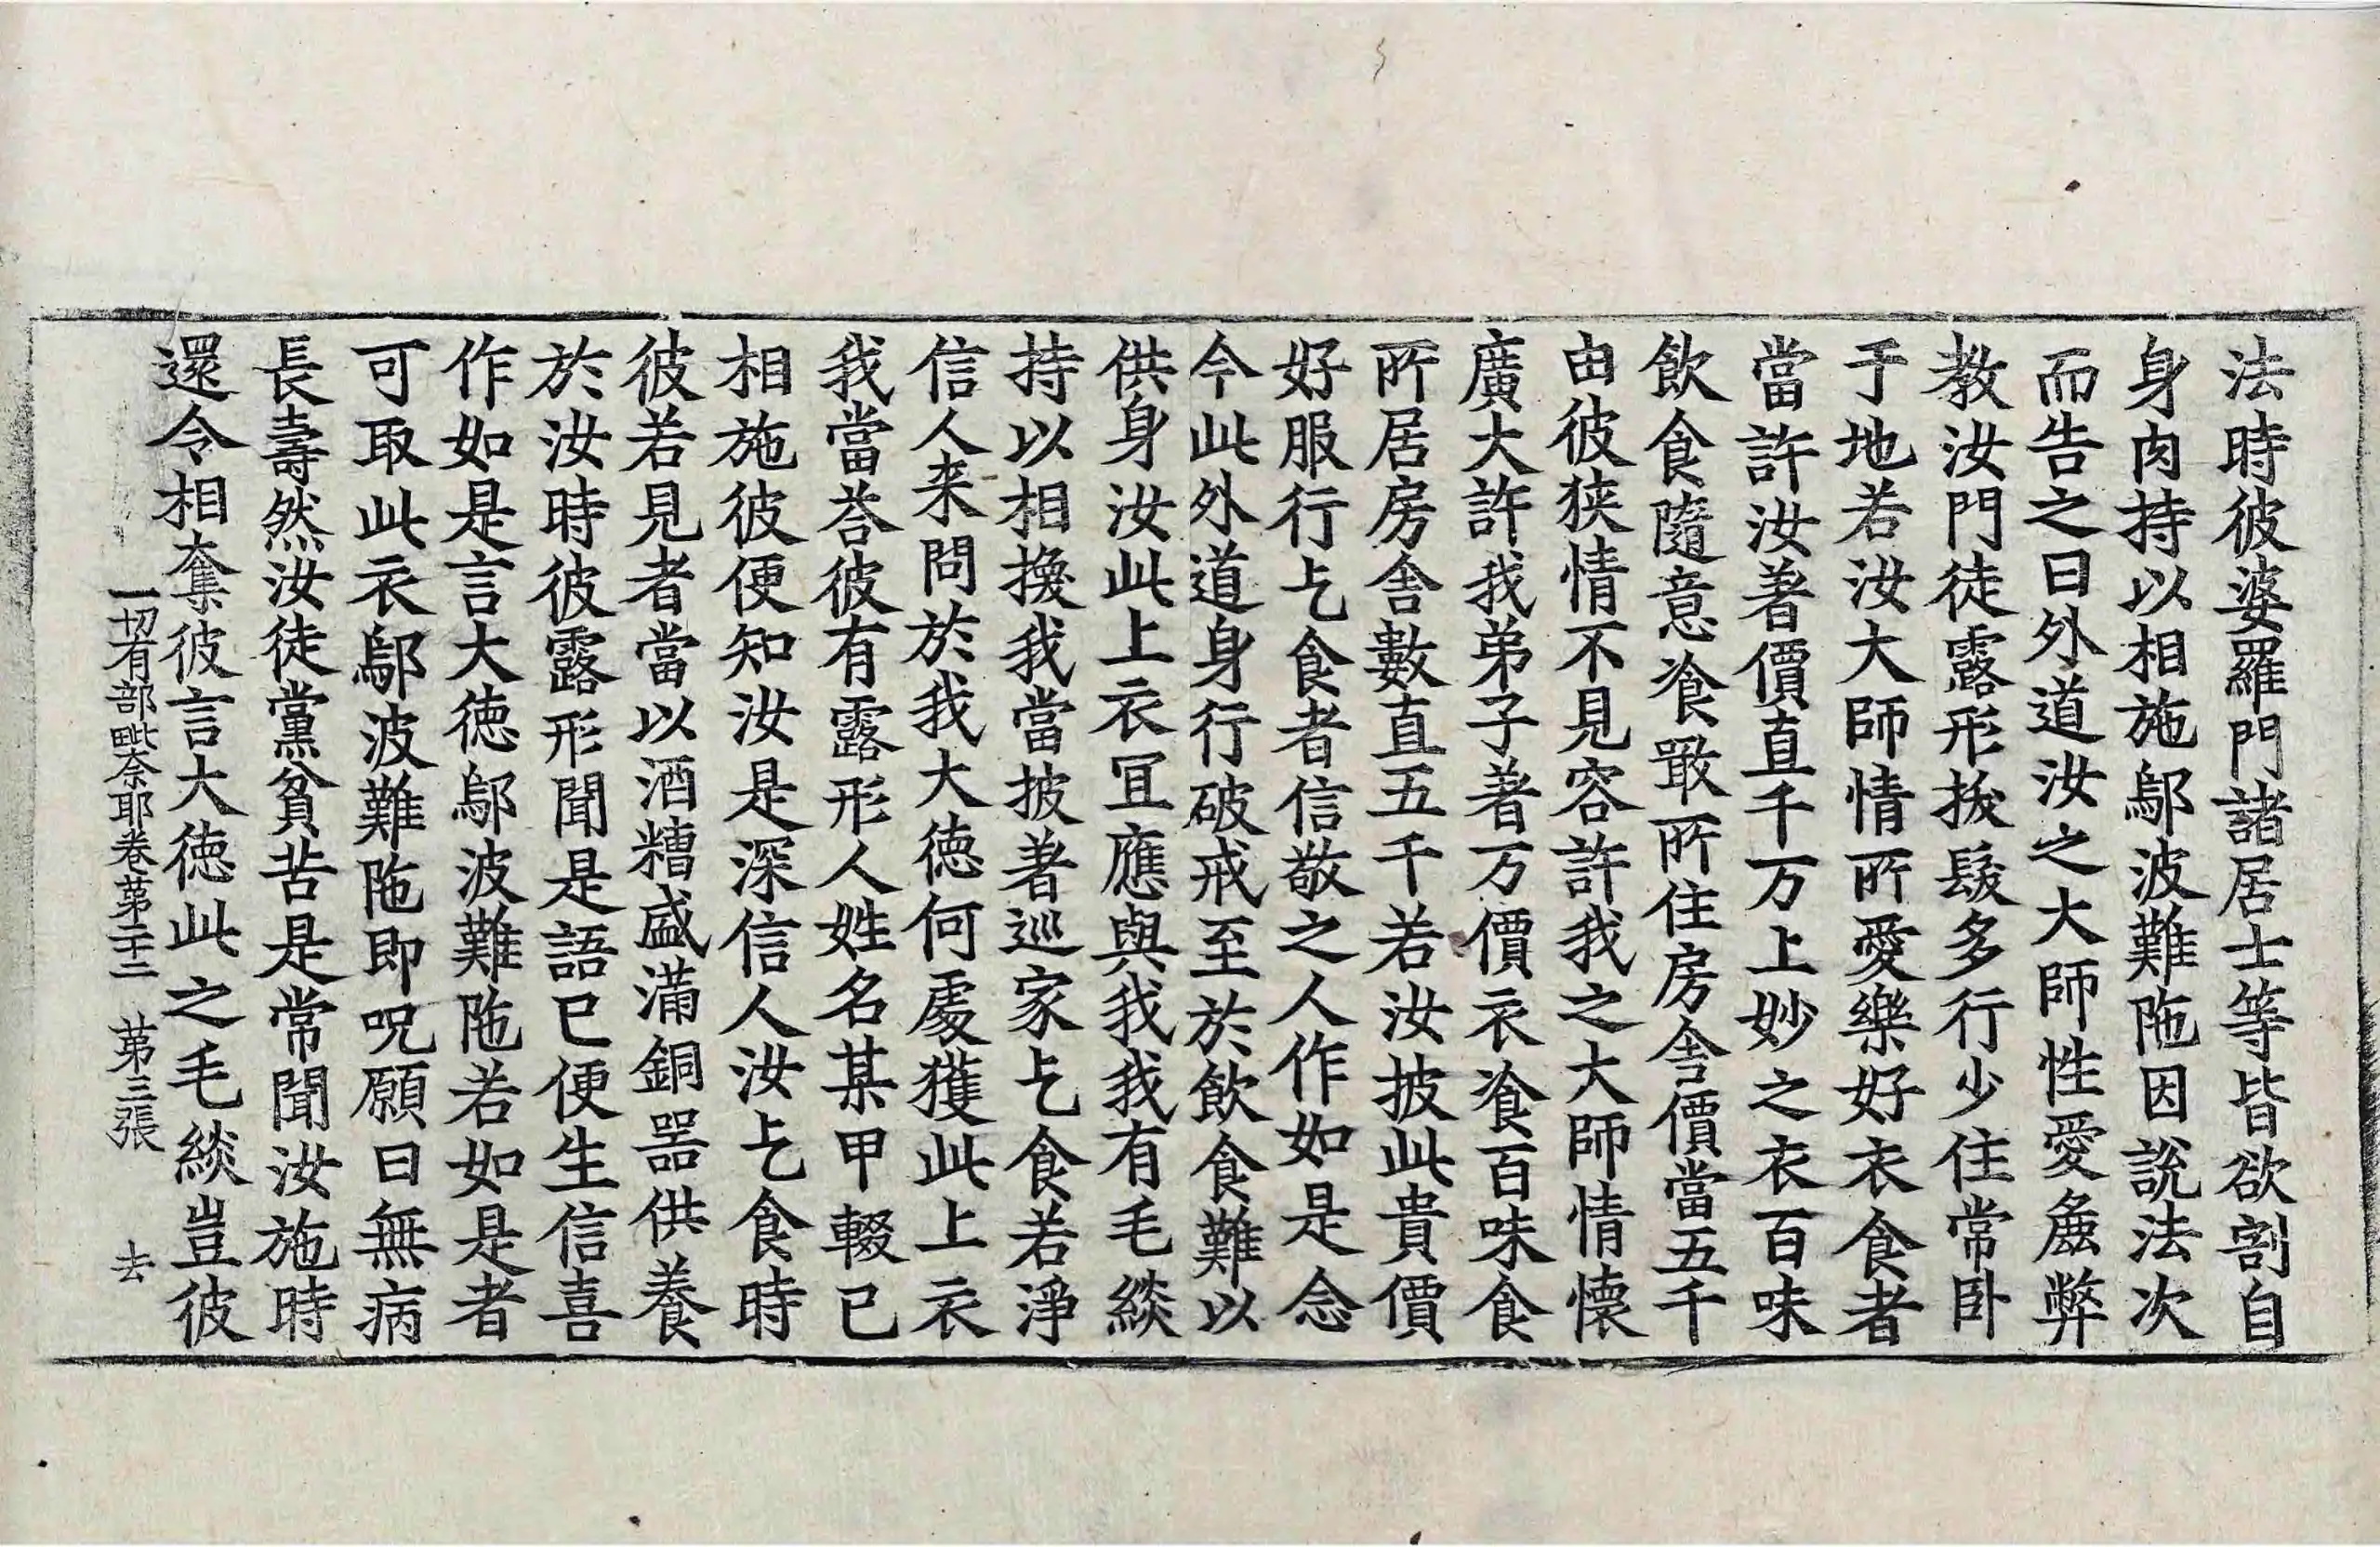 法時彼婆羅門諸居士等皆欲割自
身肉持以相施鄔波難陁因說法次
而告之曰外道汝之大師性愛麁弊
教汝門徒露形拔髮多行少住常卧
于地若汝大師情所愛樂好衣食者
當許汝著價直千万上妙之衣百味
飲食隨意飡噉所住房舍價當五千
由彼狹情不見容許我之大師情懷
廣大許我弟子著万價衣飡百味食
所居房舍數直五千若汝披此貴價
好服行乞食者信敬之人作如是念
今此外道身行破戒至於飲食難以
供身汝此上衣冝應與我我有毛緂
持以相換我當披著巡家乞食若淨
信人来問於我大徳何處獲此上衣
我當荅彼有露形人姓名某甲輟已
相施彼便知汝是深信人汝乞食時
彼若見者當以酒糟盛滿銅器供養
於汝時彼露形聞是語已便生信喜
作如是言大徳鄔波難陁若如是者
可取此衣鄔波難陁即呪願曰無病
長壽然汝徒黨貧苦是常聞汝施時
還令相奪彼言大徳此之毛緂豈彼
一切有部毗奈耶卷第二十二 第三張 去